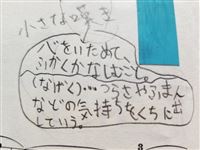 小さな嘆き
心をいためて、
ふかくかなしむこと。
(なげく)…つらさやふまん
などの気持ちをくちに出
していう。
3